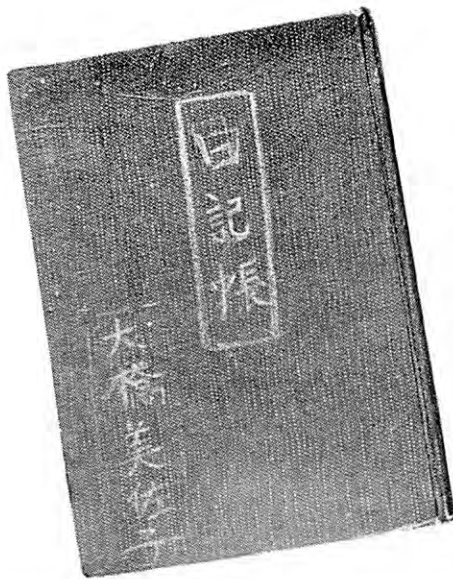 日記帳
大橋美祐子